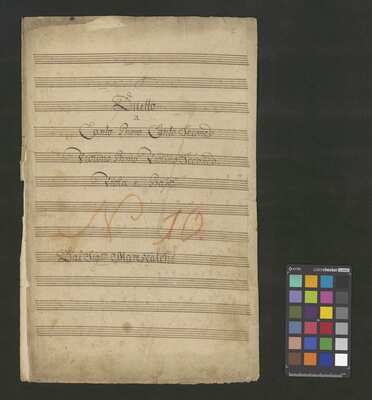 Duetto
a
Canto Primo Canto Secondo
Violino Primo Violino Secondo
Viola e Basso
No 10
Del Sigr Marescalchi
colorchecker